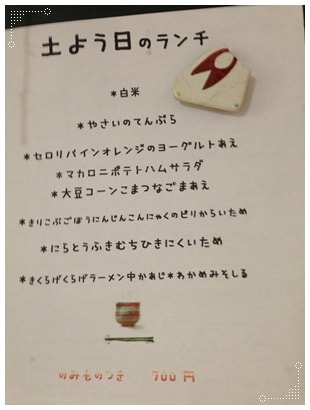 土よう日のランチ
*白米
*やさいのてんぷら
*セロリパインオレンジのヨーグルトあえ
*マカロニポテトハムサラダ
*大豆コーンこまつなごまあえ
*きりこぶごぼうにんじんこんにゃくのピリからいため
*にらとうふきむちひきにくいため
*きくらげくらげラーメン中かあじ*わかめみそしる
のみものつき 700円